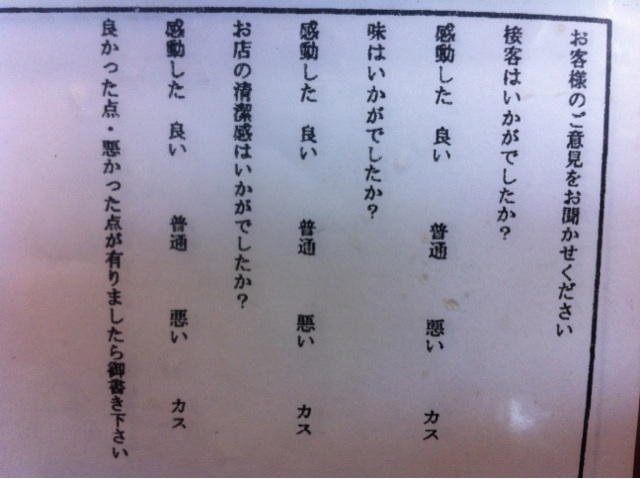 お客様のご意見をお聞かせください
接客はいかがでしたか？
感動した 良い 普通 悪い カス
味はいかがでしたか？
感動した 良い 普通 悪い カス
お店の清潔感はいかがでしたか？
感動した 良い 普通 悪い カス
良かった点・悪かった点が有りましたら御書き下さい